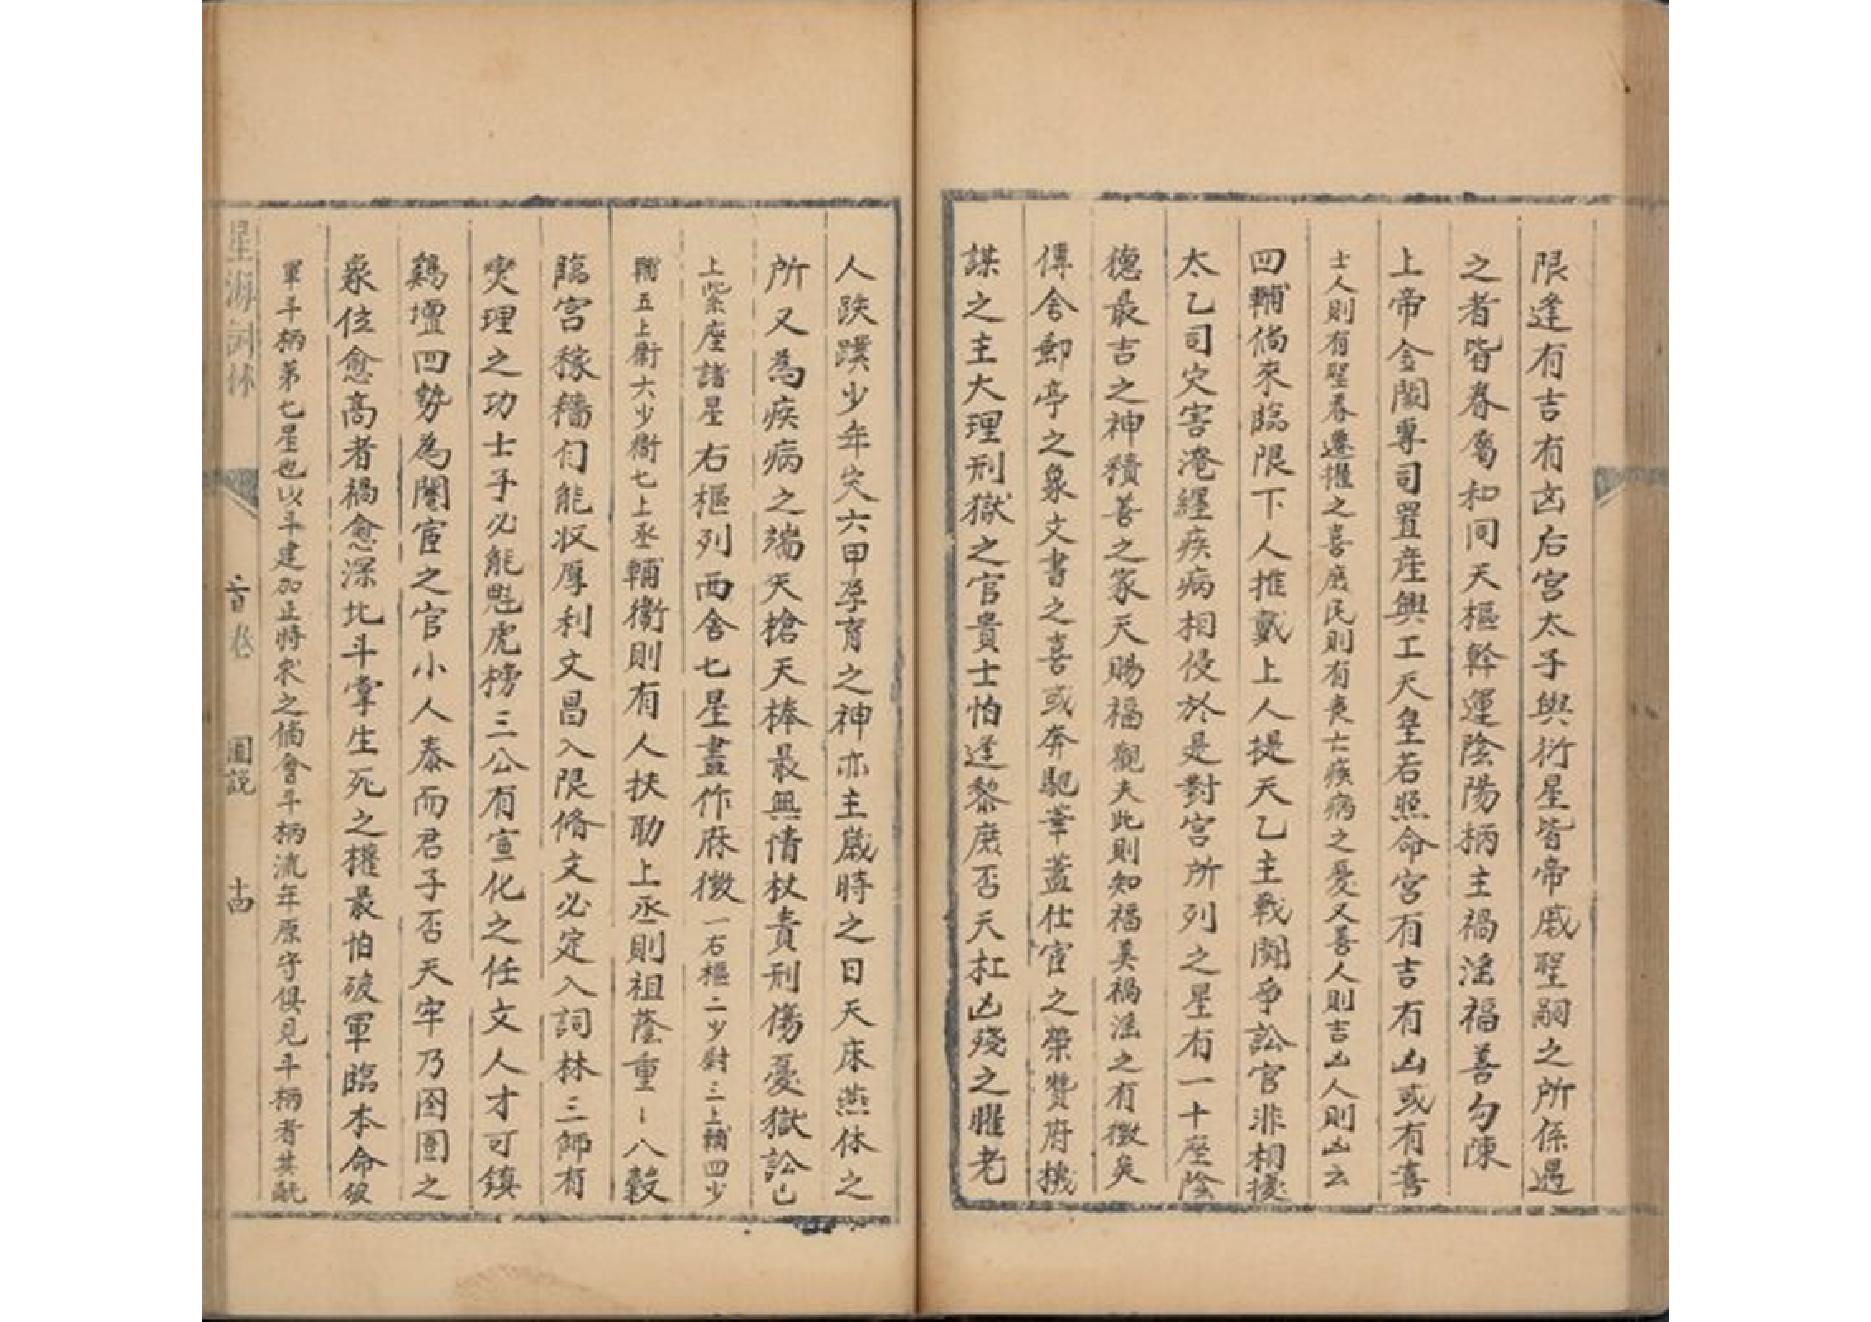 限逢有吉有凶后宮太子與衍星皆帝戚聖嗣之所係遇
之者皆眷屬和同天樞斡運陰陽柄主禍淫福善勾陳
上帝金闕專司置産興工天皇若照命宮有吉有凶或有喜
士人則有聖眷遷擢之喜庶民則有喪亡疾病之憂又善人則吉凶人則凶云
四輔倘來臨限下人推戴上人提天乙主戰鬪爭訟官非相擾
太乙司灾害淹纏疾病相侵於是對宮所列之星有一十座陰
德最吉之神積善之家天賜福觀夫此則知福善禍淫之有徵矣
傳舍郵亭之象文書之喜或奔馳華蓋仕宦之榮贊府機
謀之主大理刑獄之官貴士怕逢黎庶否天杠凶殘之曜老
人跌蹼少年灾六甲孕育之神亦主歲時之日天床燕休之
所又為疾病之端天槍天棒最興情杖責刑傷憂獄訟已
上紫座諸星右樞列西舍七星畫作庥徵一右樞二少尉三上輔四少
輔五上衛六少衛七上丞輔衛則有人扶助上丞則祖蔭重八穀
臨宮稼穡旬能收厚利文昌入限脩文必定入詞林三師有
爕理之功士子必能魁虎榜三公有宣化之任文人才可鎮
鷄壇四勢為閹宦之官小人泰而君子否天牢乃囹圄之
象位愈高者禍愈深北斗掌生死之權最怕破軍臨本命破
軍斗柄第七星也以斗建加止將衆之倘會斗柄流年原守俱見斗柄者其
星海詞林
首卷
圖説
十四